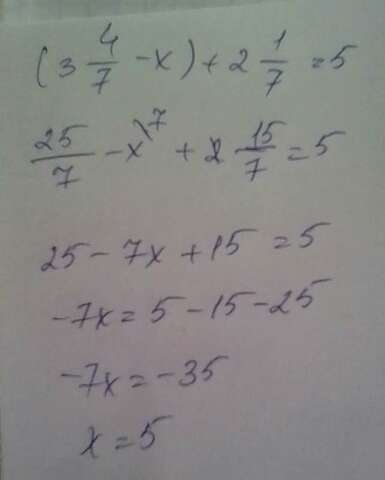 (3 4/7 - x) + 2 1/7 = 5
25/7 - x \7 + 15/7 = 5
25 - 7x + 15 = 5
-7x = 5 - 15 - 25
-7x = -35
x = 5